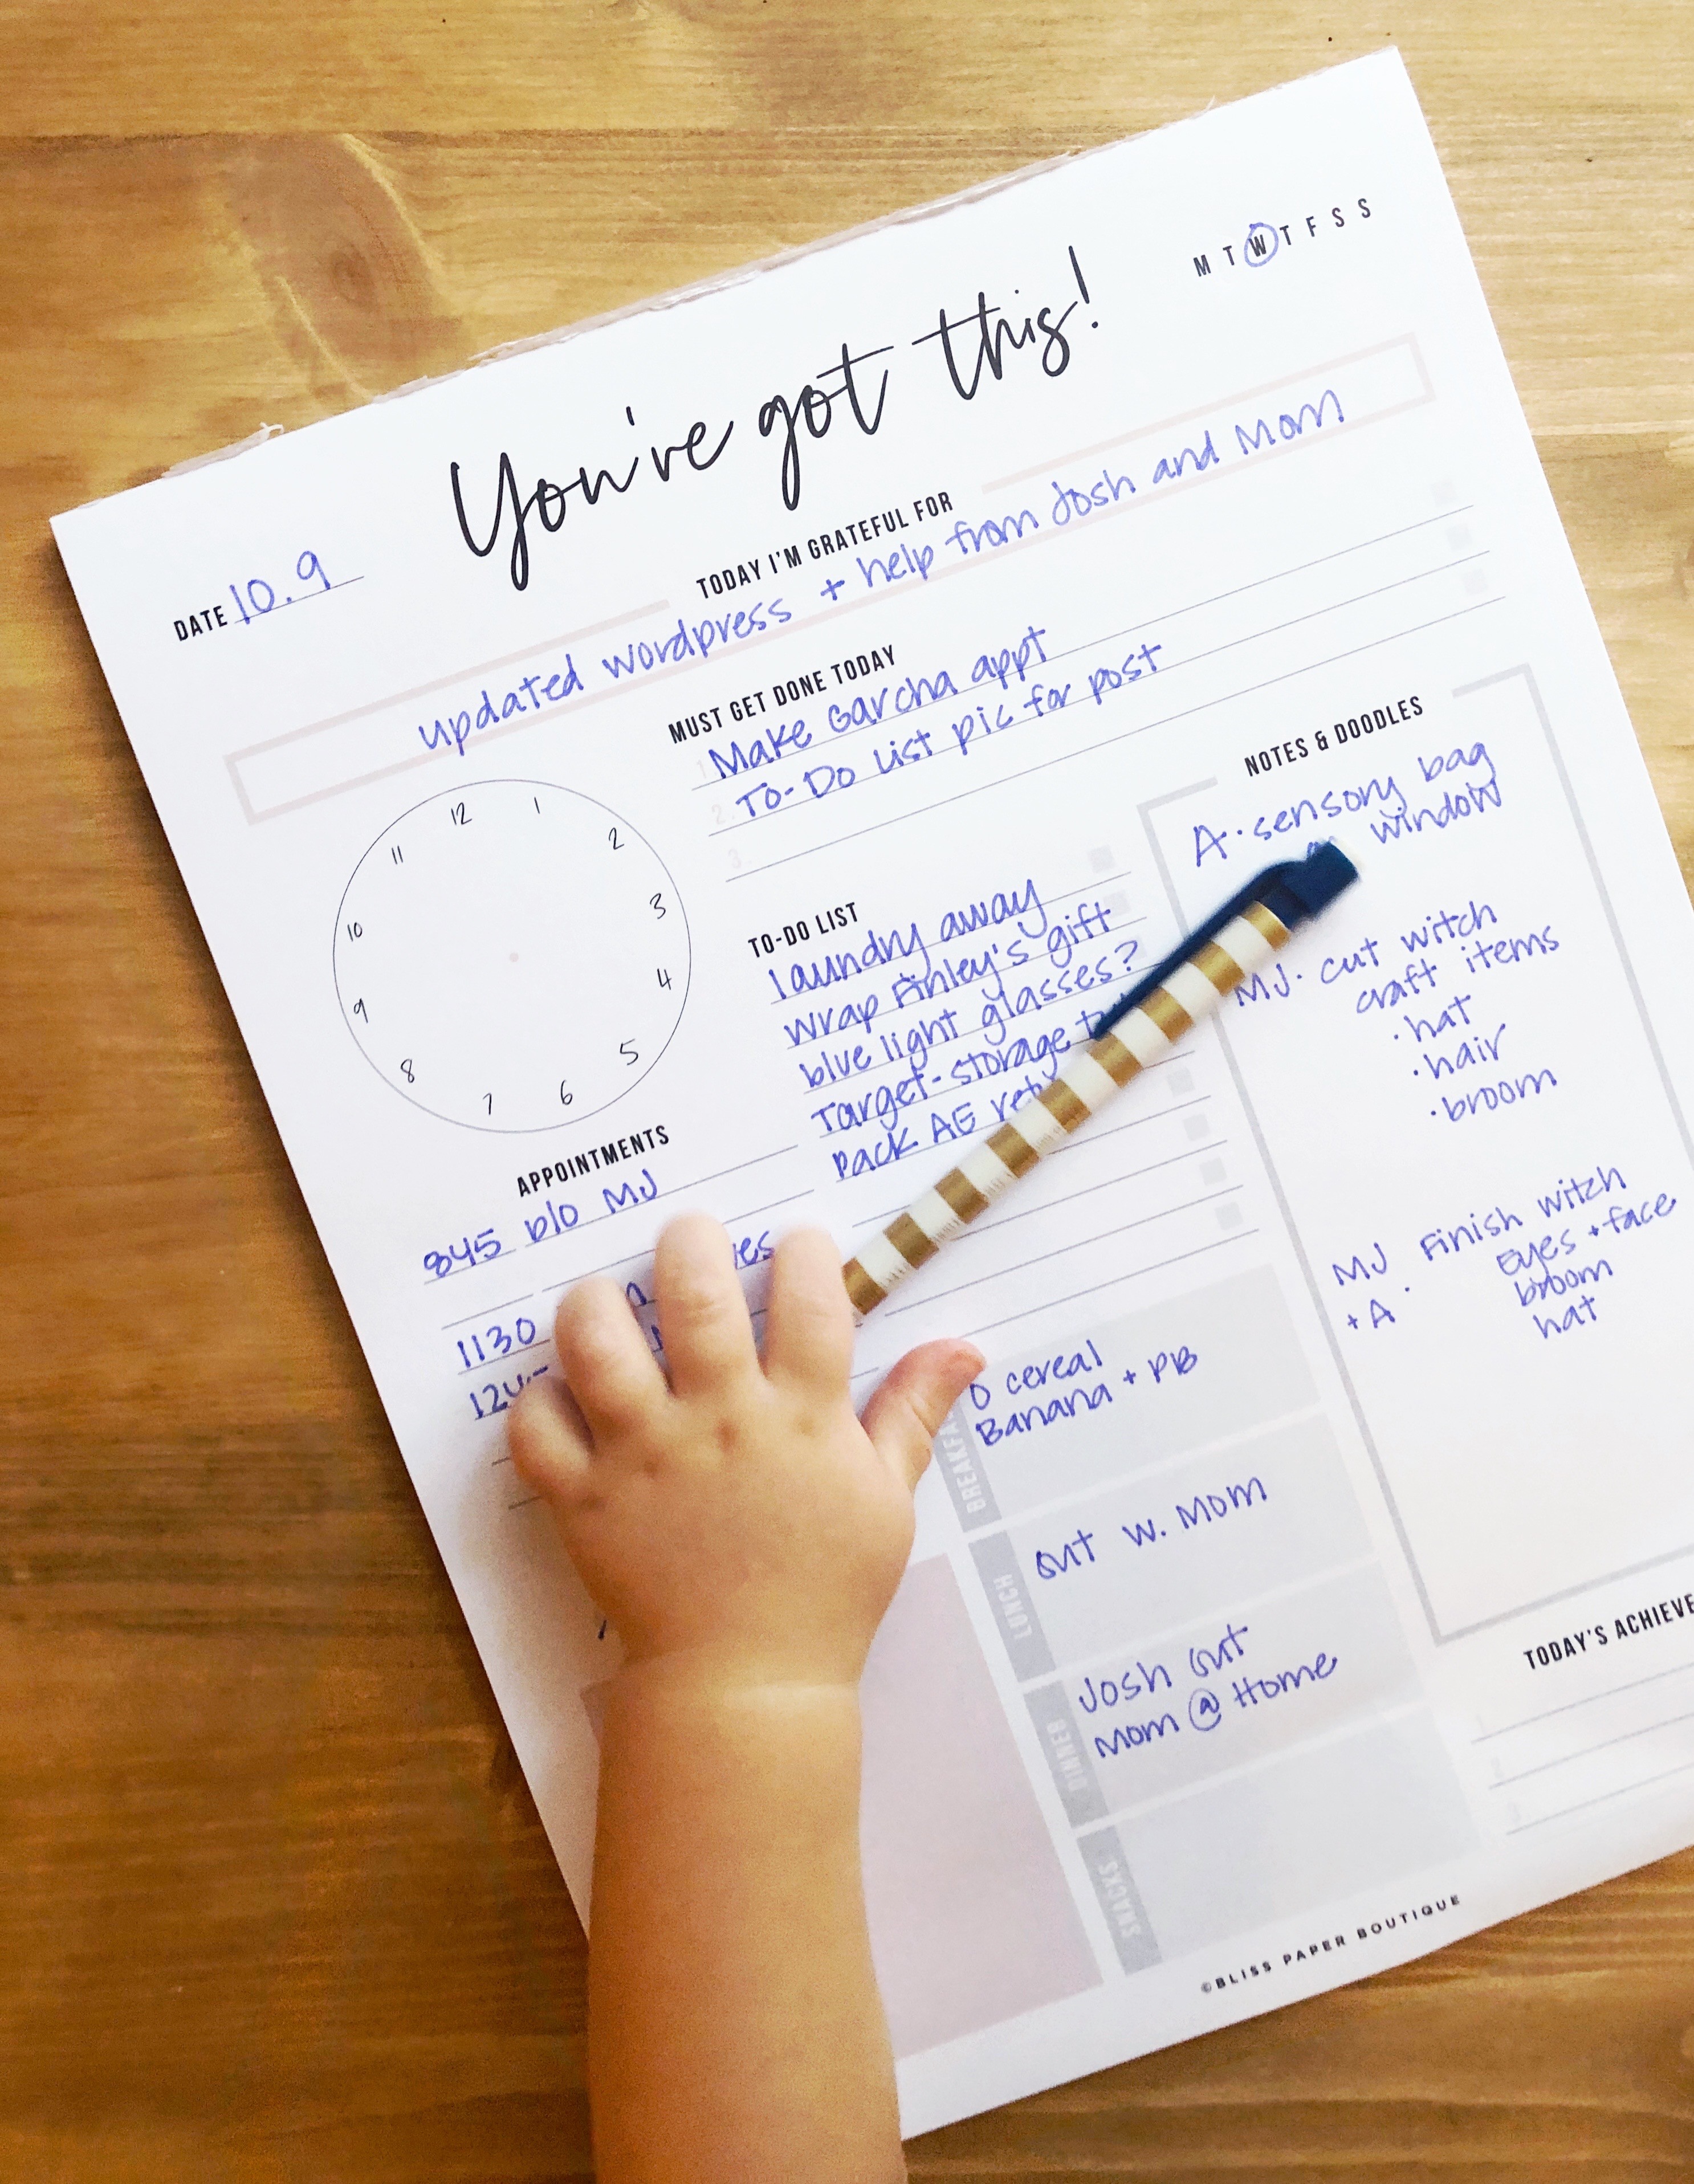 M T W T F S S
You've got this!
DATE 10.9
TODAY I'M GRATEFUL FOR
updated wordpress + help from Josh and Mom
MUST GET DONE TODAY
1. Make Garcha appt
2. To-Do List pic for post
3.
12
1
2
3
4
5
6
7
8
9
10
11
TO-DO LIST
laundry away
wrap Finley's gift
blue light glasses?
Target-storage
pack AE
APPOINTMENTS
845 D/O MJ
1130
NOTES & DOODLES
A. sensory bag
window
MJ. cut witch
craft items
• hat
• hair
• broom
MJ Finish witch
+ A . Eyes + face
broom
hat
cereal
Banana + PB
LUNCH
out w. Mom
DINNER
Josh out
Mom @ Home
SNACKS
TODAY'S
1
2
3
©BLISS PAPER BOUTIQUE